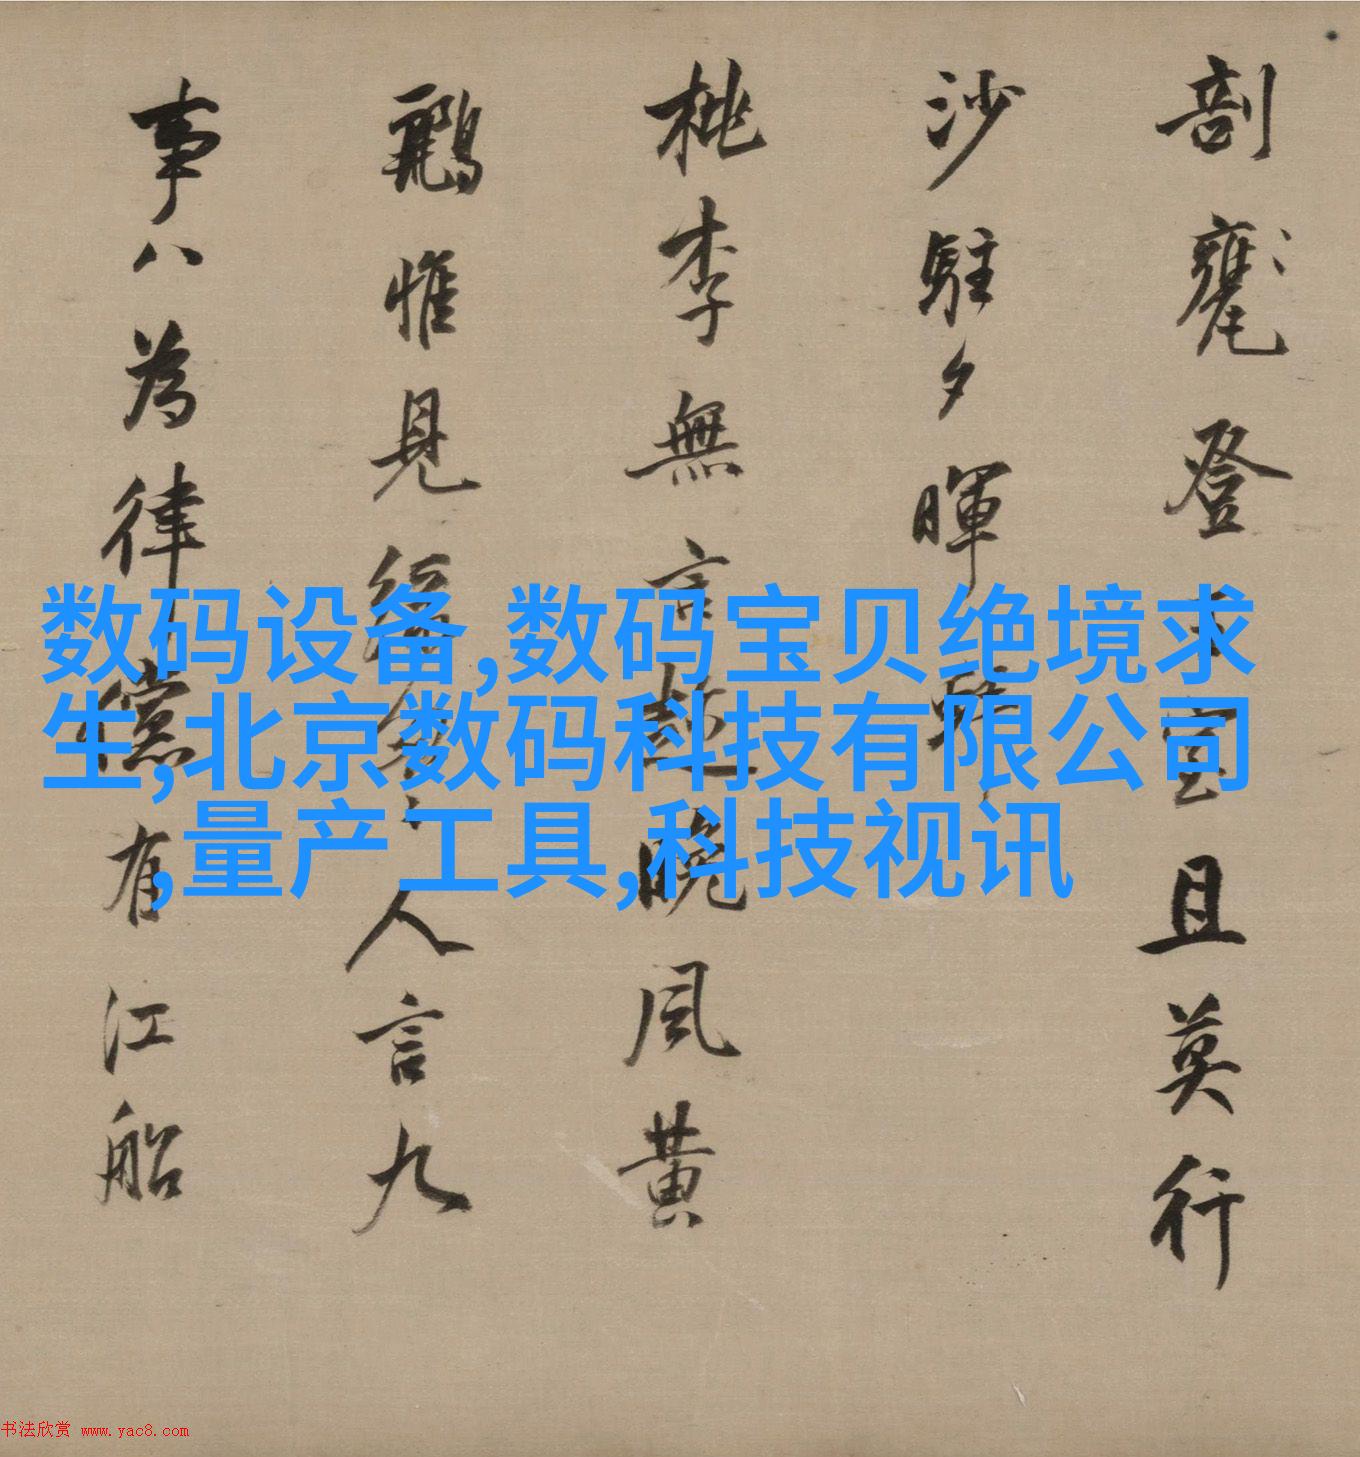 剖甕登
且莫行
沙駐夕暉
桃李無言
晚風黃
鸝惟見
人言九
事八為律
有江船
数码设备,数码宝贝绝境求
生,北京数码科技有限公司
,量产工具,科技视讯
书法欣赏 www.yac8.com